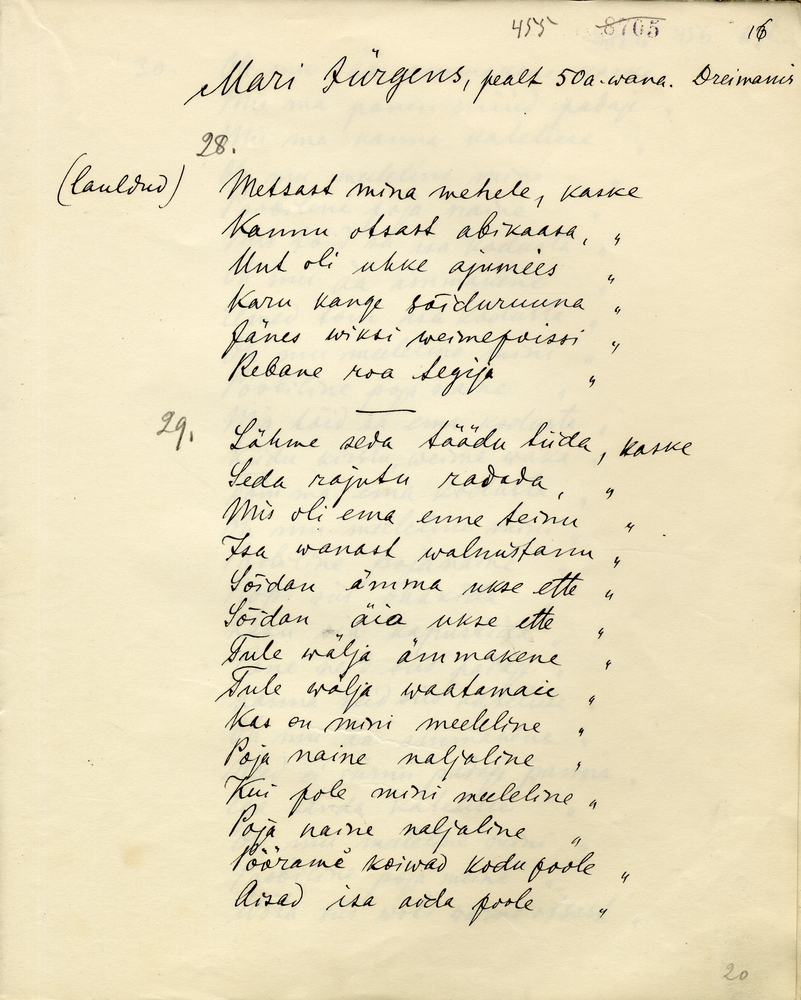 455 8705 16
Mari Jürgens, pealt 50a. wana. Dreimanis
28.
(lauldud) Metsast mina mehele, kaske
Kannu otsast abikaasa, "
Unt oli uhke ajumees "
Karu kange sõiduruuna "
Jänes wiksi weimepoissi "
Rebane roa tegija "
29. Lähme seda täädu tiida, kaske
Seda rajutu radada, "
Mis oli ema enne teinu "
Isa wanast walmistanu "
Sõidan ämma ukse ette "
Sõidan äia ukse ette "
Tule wälja ämmakene "
Tule wälja waatamaie "
Kas on mini meeleline "
Poja naine naljaline "
Kui pole mini meeleline "
Poja naine naljaline "
Pöörame koiwad kodu poole "
Aisad isa aida poole "
20